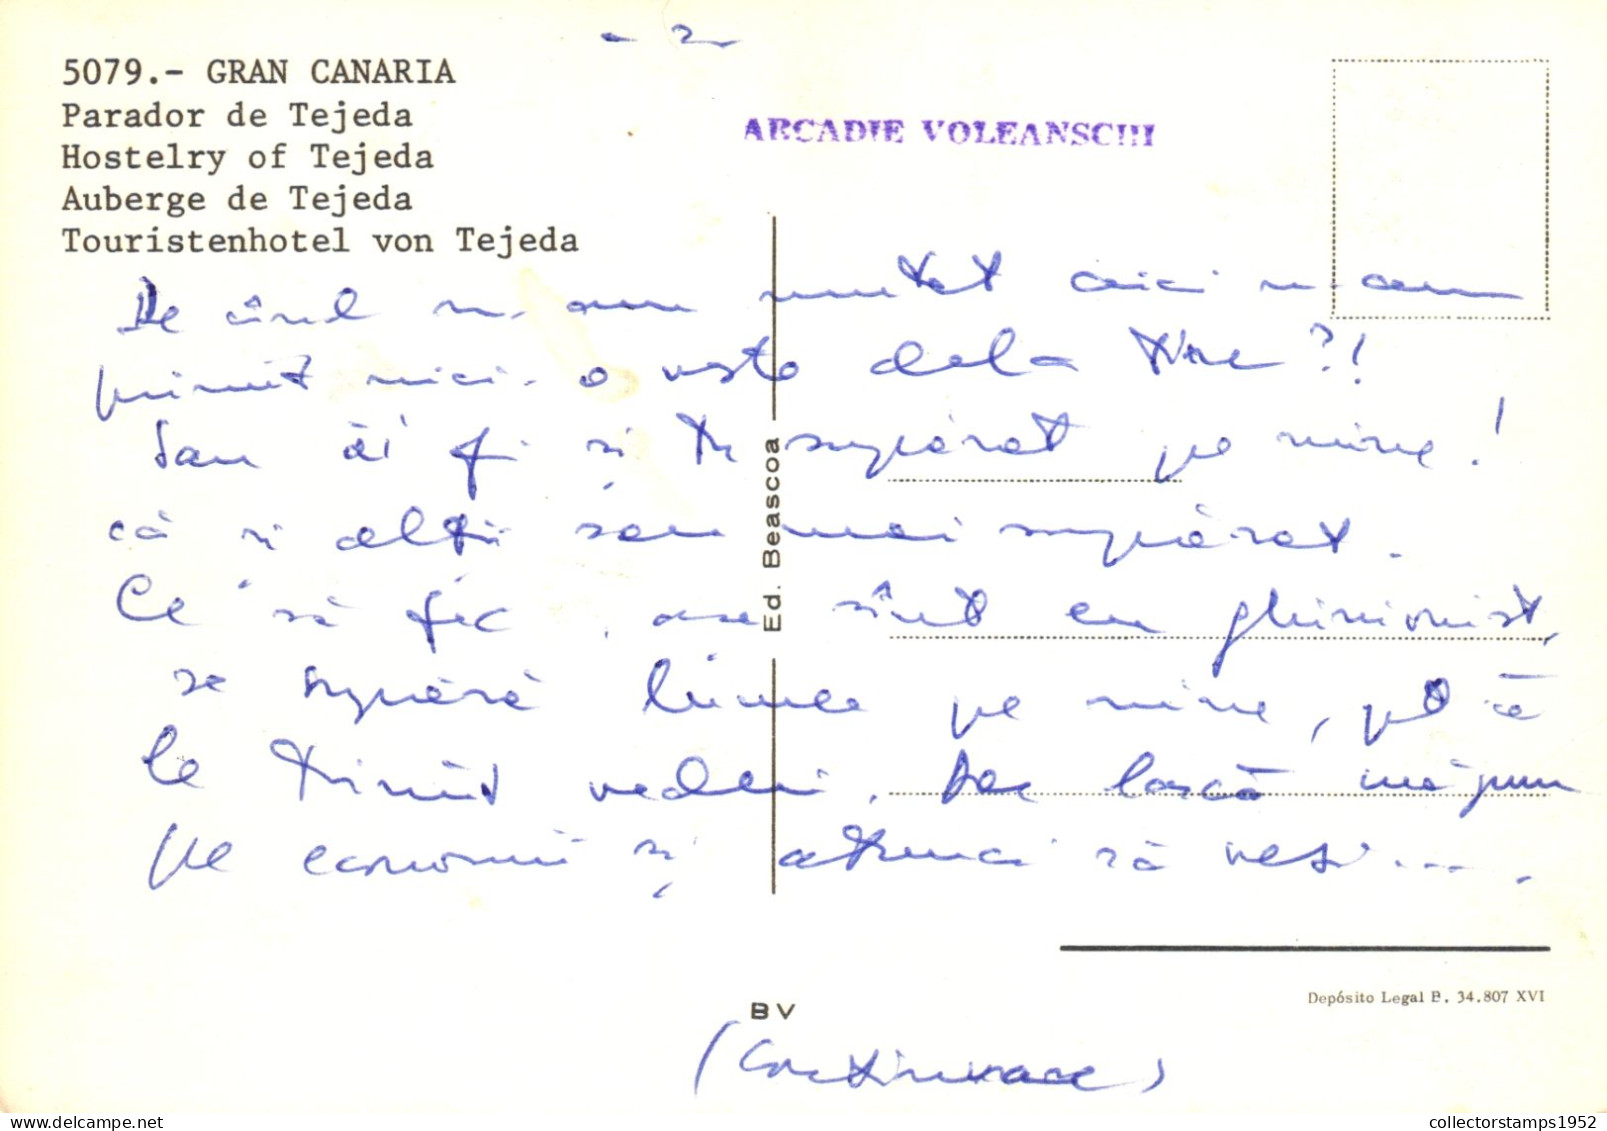 - 2 -
5079.- GRAN CANARIA
Parador de Tejeda
Hostelry of Tejeda
Auberge de Tejeda
Touristenhotel von Tejeda
ARCADIE VOLEANSCHI
De când m-am mutat aici n-am
primit nici o veste dela tine?!
Sau ăi fi și tu supărat pe mine!
că și alții sau mai supărat.
Ce să fac, așa sînt eu ghinionist,
se supără lumea pe mine, pt că
le trimit vederi. Mă pun
pe economii și atunci să vezi....
Ed. Beascoa
Depósito Legal B. 34.807 XVI
BV
(Continuare)
collectorstamps1952